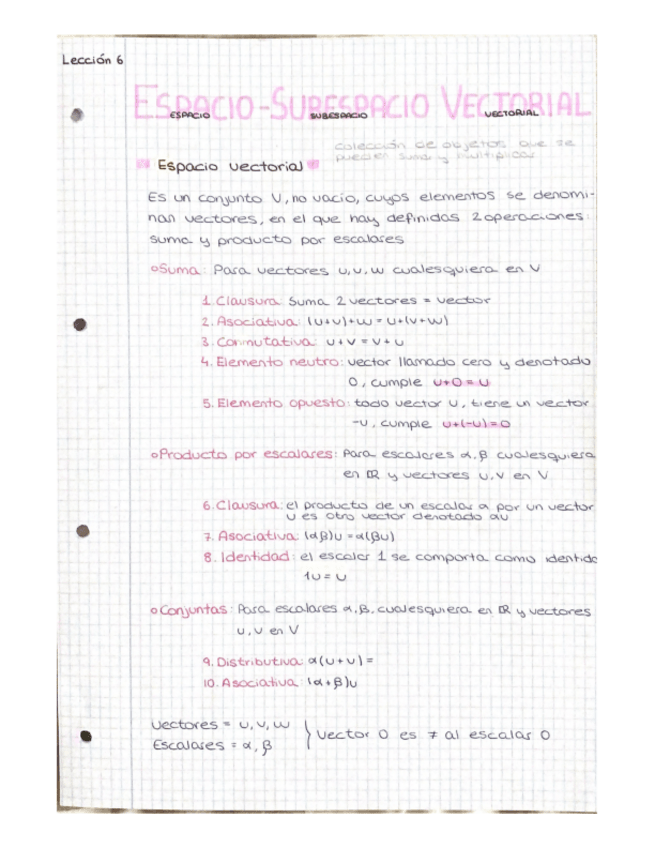 Lección 6
ESPACIO-SUBESPACIO VECTORIAL
ESPACIO SUBESPACIO VECTORIAL
colección de objetos que se
pueden sumar y multiplicar
Espacio vectorial
Es un conjunto V, no vacío, cuyos elementos se denomi-
nan vectores, en el que hay definidas 2 operaciones:
suma y producto por escalares
Suma: Para vectores u, v, w cualesquiera en V
1. Clausura: Suma 2 vectores = vector
2. Asociativa: (u+v)+w = u+(v+w)
3. Conmutativa: u+v = v+u
4. Elemento neutro: vector llamado cero y denotado
0, cumple u+0=u
5. Elemento opuesto: todo vector u, tiene un vector
-u, cumple u+(-u)=0
Producto por escalares: Para escalares α, β cualesquiera
en ℝ y vectores u, v en V
6. Clausura: el producto de un escalar α por un vector
u es otro vector denotado αu
7. Asociativa: (αβ)u = α(βu)
8. Identidad: el escalar 1 se comporta como identida
1u = u
Conjuntas: Para escalares α, β, cualesquiera en ℝ y vectores
u, v en V
9. Distributiva: α(u+v) =
10. Asociativa: (α+β)u
Vectores = u, v, w
Escalares = α, β
} Vector 0 es ≠ al escalar 0